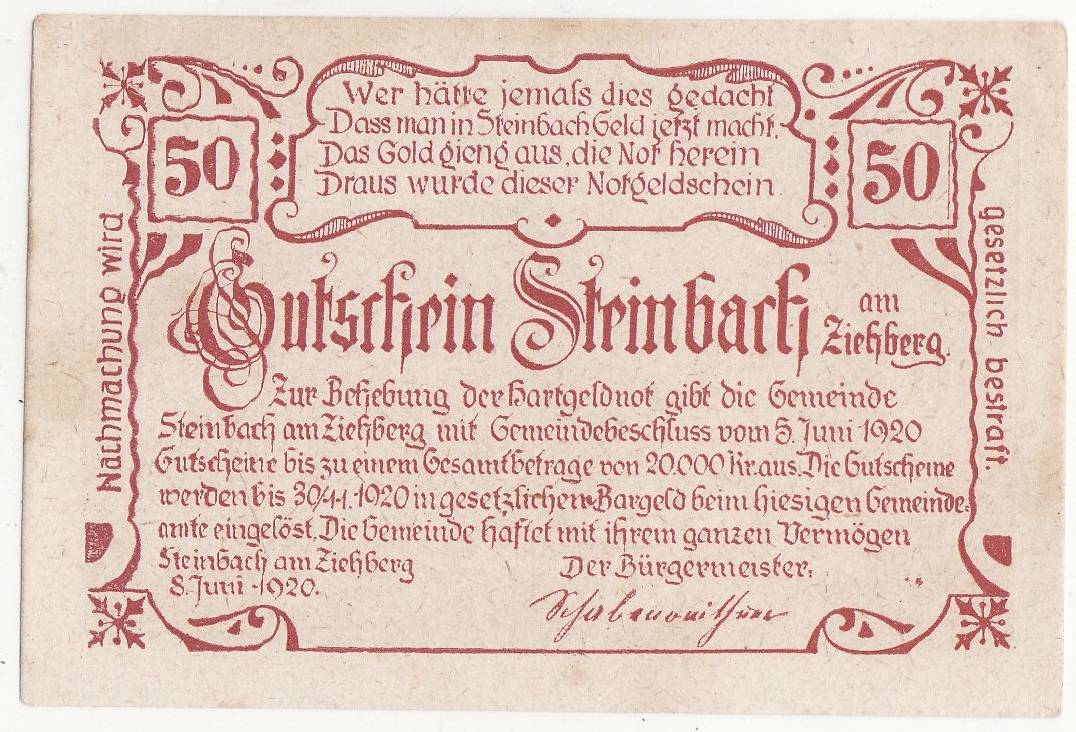 Wer hätte jemals dies gedacht
Dass man in Steinbach Geld jetzt macht,
Das Gold gieng aus, die Not herein
Draus wurde dieser Notgeldschein.
50
50
Nachmachung wird
gesetzlich bestraft.
Gutschein Steinbach am Ziehberg.
Zur Behebung der Hartgeldnot gibt die Gemeinde
Steinbach am Ziehberg mit Gemeindebeschluss vom 5. Juni 1920
Gutscheine bis zu einem Gesamtbetrage von 20.000 Kr. aus. Die Gutscheine
werden bis 30/11. 1920 in gesetzlichem Bargeld beim hiesigen Gemeinde-
amte eingelöst. Die Gemeinde haftet mit ihrem ganzen Vermögen
Steinbach am Ziehberg
8. Juni 1920.
Der Bürgermeister: